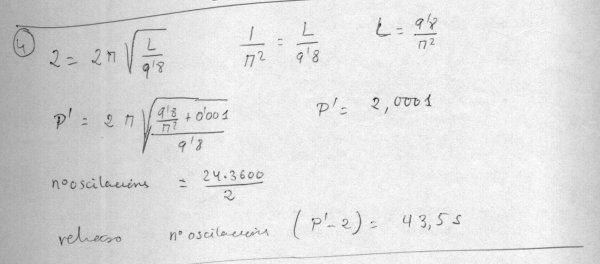 4 2 = 2π √(L/9'8) 1/π² = L/9'8 L = 9'8/π²
P' = 2 π √((9'8/π² + 0'001)/9'8) P' = 2,0001
nº oscilacións = 24·3600/2
retraso nº oscilacións (P' - 2) = 43,5 s